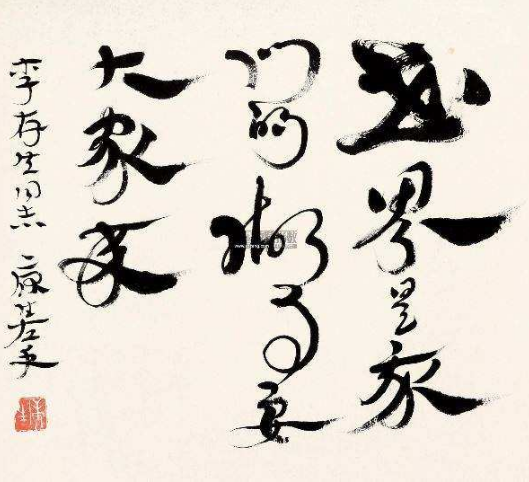 世界是我
们的做事要
大家来
李存生同志